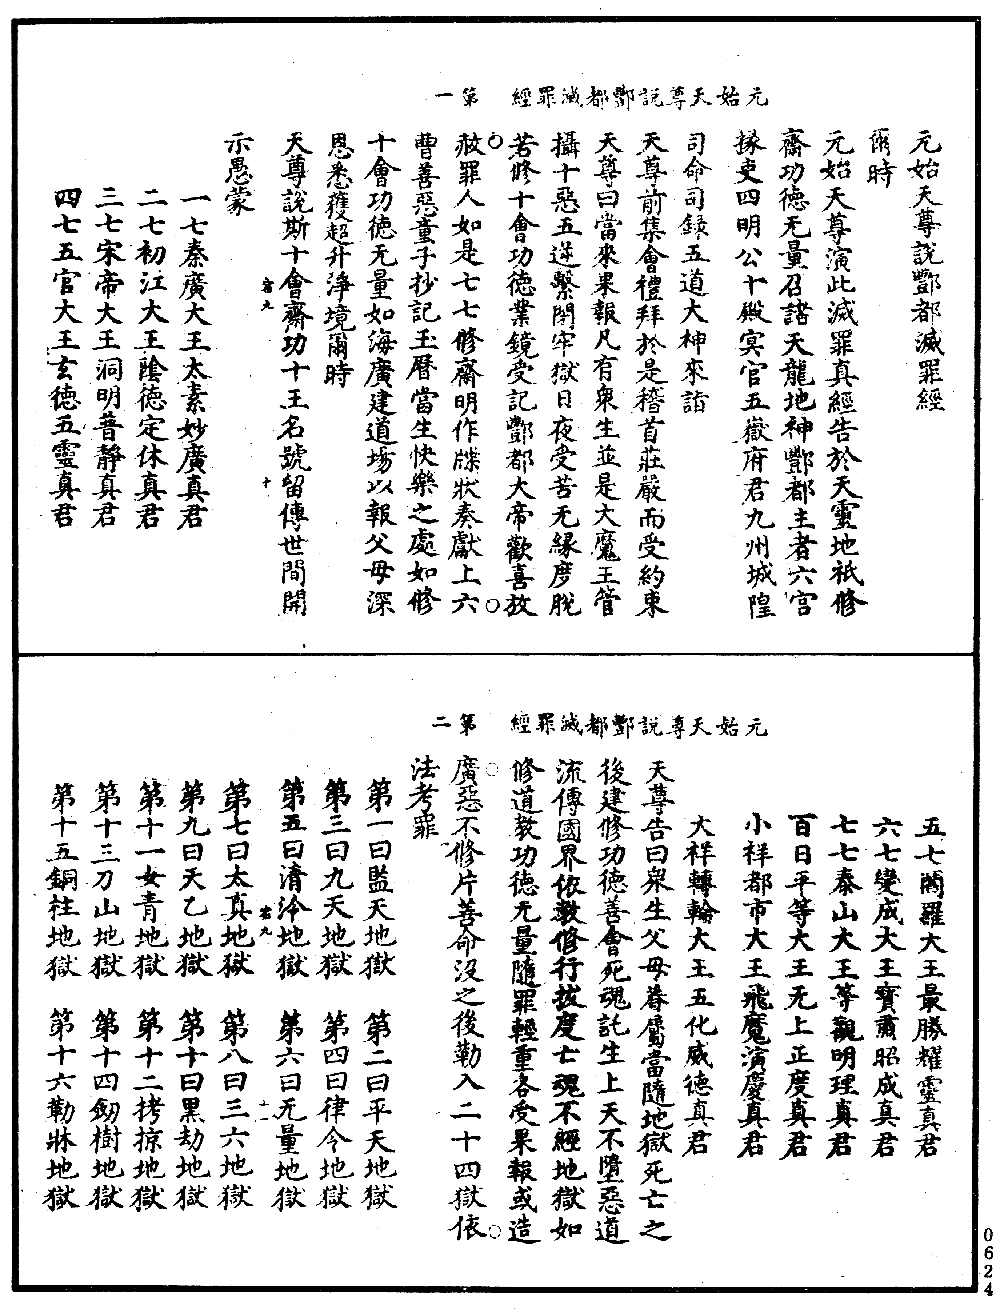 元始天尊說酆都滅罪經　第一
元始天尊說酆都滅罪經
爾時
元始天尊演此滅罪真經告於天靈地祇修
齋功德无量召諸天龍地神酆都主者六宮
掾吏四明公十殿冥官五嶽府君九州城隍
司命司錄五道大神來詣
天尊前集會禮拜於是稽首莊嚴而受約束
天尊曰當來果報凡有衆生並是大魔王管
攝十惡五逆繫閉牢獄日夜受苦无緣度脫
若修十會功德業鏡受記酆都大帝歡喜放
赦罪人如是七七修齋明作牒狀奏獻上六
曹善惡童子抄記玉曆當生快樂之處如修
十會功德无量如海廣建道場以報父母深
恩悉獲超升淨境爾時
天尊說斯十會齋功十王名號留傳世間開
宿九　十
示愚蒙
一七秦廣大王太素妙廣真君
二七初江大王陰德定休真君
三七宋帝大王洞明普靜真君
四七五官大王玄德五靈真君
元始天尊說酆都滅罪經　第二
五七閻羅大王最勝耀靈真君
六七變成大王寶肅昭成真君
七七泰山大王等觀明理真君
百日平等大王无上正度真君
小祥都市大王飛魔演慶真君
大祥轉輪大王五化威德真君
天尊告曰衆生父母眷屬當隨地獄死亡之
後建修功德善會死魂託生上天不墮惡道
流傳國界依教修行拔度亡魂不經地獄如
修道教功德无量隨罪輕重各受果報或造
廣惡不修片善命沒之後勒入二十四獄依
法考罪
第一曰監天地獄　第二曰平天地獄
第三曰九天地獄　第四曰律令地獄
第五曰清泠地獄　第六曰无量地獄
宿九　十一
第七曰太真地獄　第八曰三六地獄
第九曰天乙地獄　第十曰黑劫地獄
第十一女青地獄　第十二拷掠地獄
第十三刀山地獄　第十四劒樹地獄
第十五銅柱地獄　第十六勒牀地獄
0624